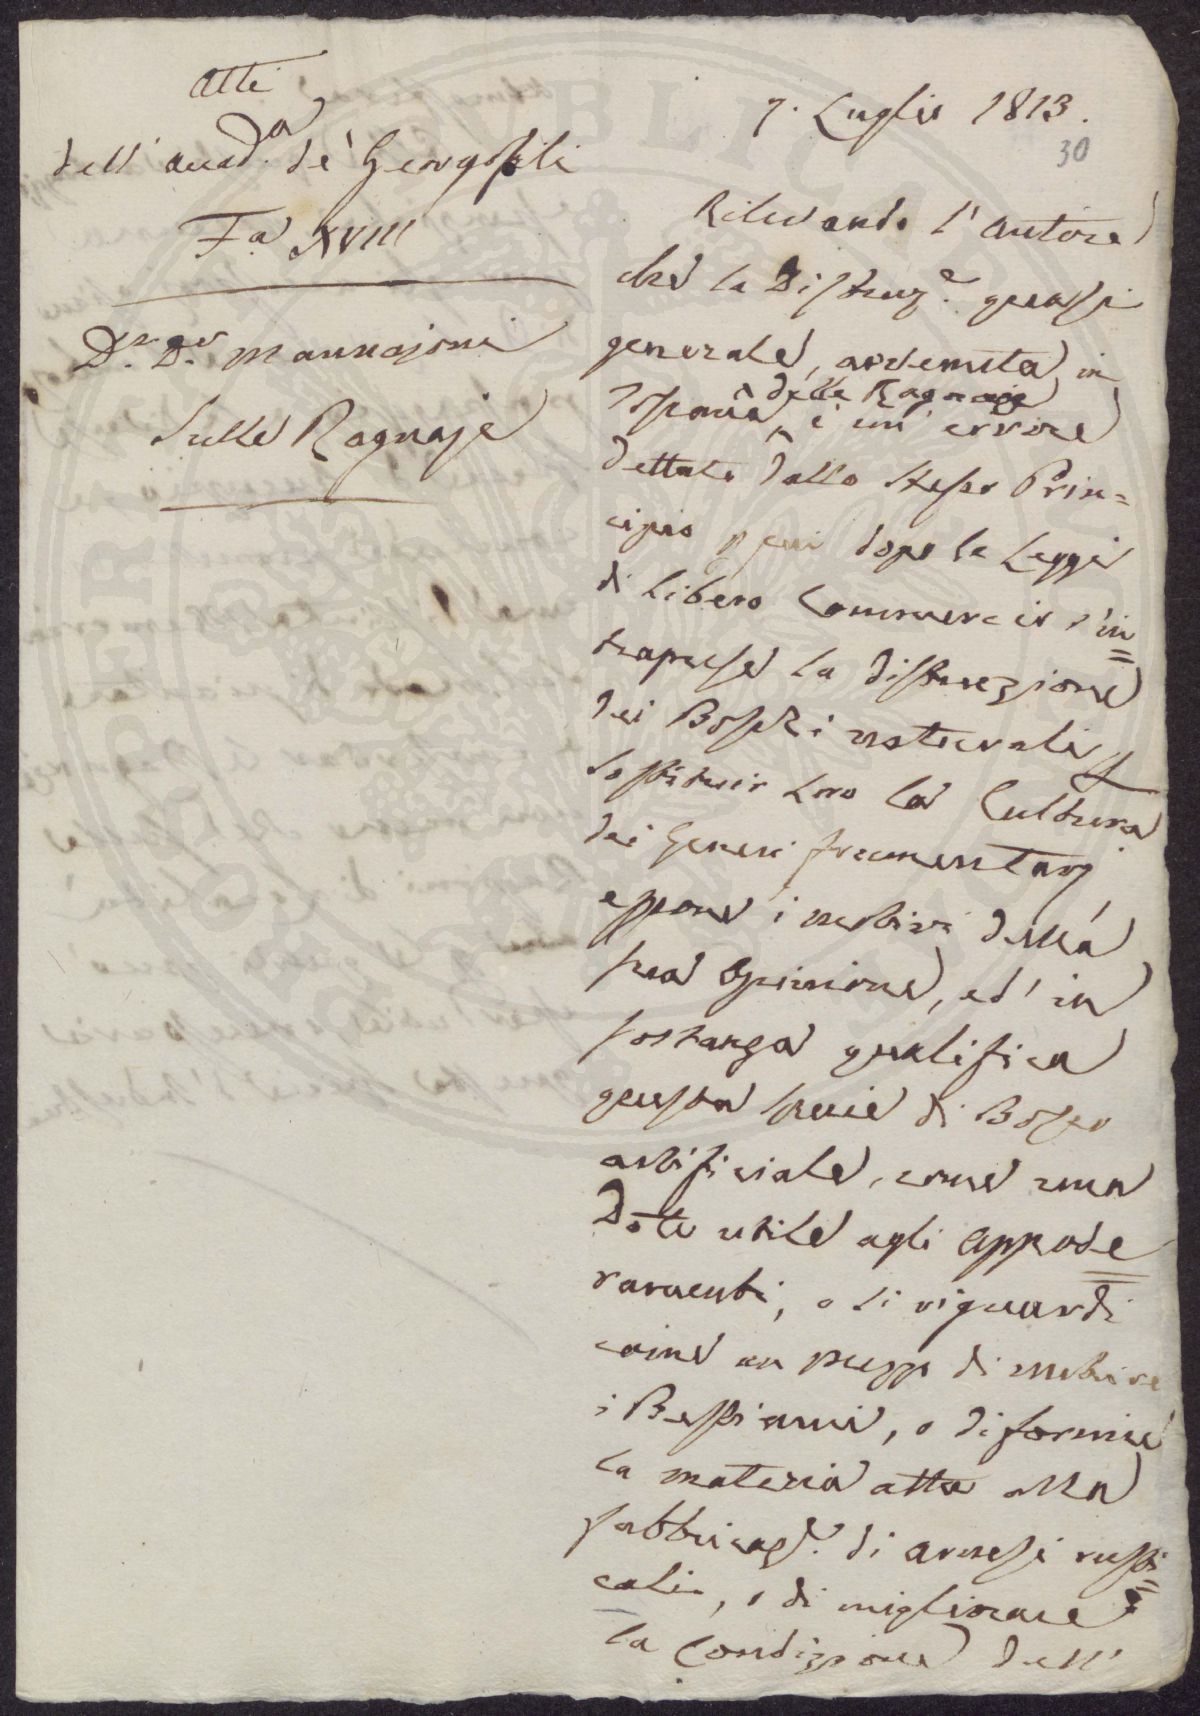 Atti
dell' Accad.a de' Georgofili
F.a XVIII
D.r Mannajoni
Sulle Ragnaje
7. Luglio 1813.
30
Rilevando l'Autore
che la Distruz.e quasi
generale, avvenuta in
Toscana delle Ragnaje è un' errore
dettato dallo stesso Prin=
cipio p cui dopo le Leggi
di libero Commercio s'in=
traprese la distruzione
dei Boschi naturali p
sostituir loro la Cultura
dei Generi frumentarj
espone i motivi della
sua Opinione, ed' in
sostanza qualifica
questa specie di Bosco
artificiale, come una
Dote utile agli Appode=
ramenti, o si riguardi
come un mezzo di nutrire
i Bestiami, o di fornire
la materia atta alla
fabbricaz.e di arnesi rusti=
cali, o di migliorare
la Condizione dell'